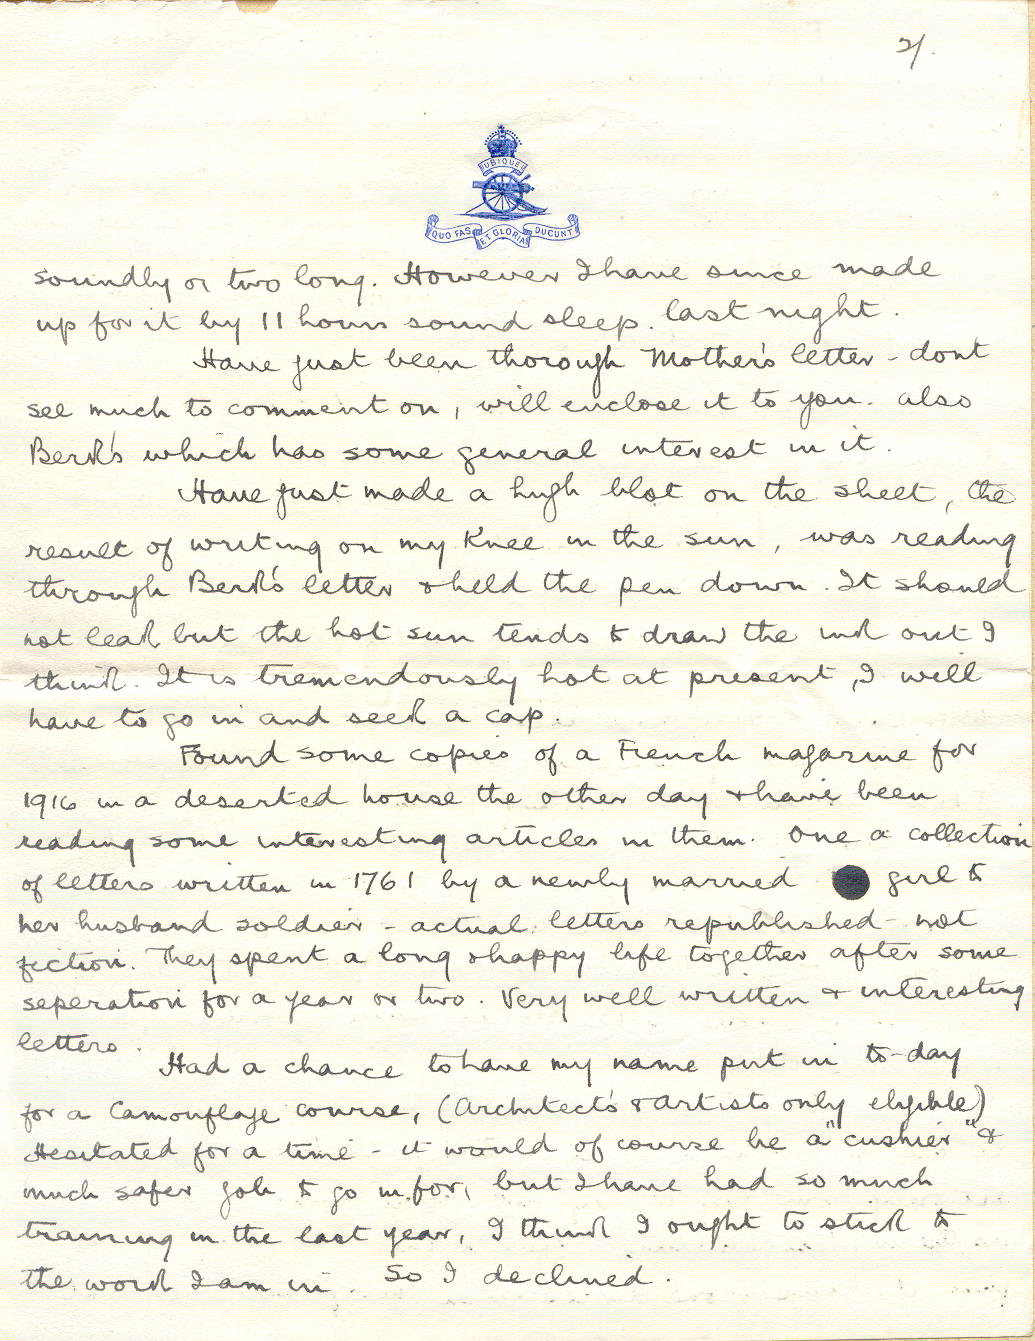 2/.
UBIQUE
QUO FAS ET GLORIA DUCUNT
soundly or two long. However I have since made
up for it by 11 hours sound sleep. last night.
Have just been thorough Mother's letter - dont
see much to comment on, will enclose it to you. also
Berk's which has some general interest in it.
Have just made a hugh blot on the sheet, the
result of writing on my Knee in the sun, was reading
through Berk's letter & held the pen down. It should
not leak but the hot sun tends to draw the ink out I
think. It is tremendously hot at present, I will
have to go in and seek a cap.
Found some copies of a French magazine for
1916 in a deserted house the other day & have been
reading some interesting articles in them. One a collection
of letters written in 1761 by a newly married girl to
her husband soldier - actual letters republished - not
fiction. They spent a long & happy life together after some
seperation for a year or two. Very well written & interesting
letters.
Had a chance to have my name put in to-day
for a Camouflage course, (Architect's & Artists only eligible)
Hesitated for a time - it would of course be a "cushier" &
much safer job to go in for, but I have had so much
training in the last year, I think I ought to stick to
the work I am in. So I declined.